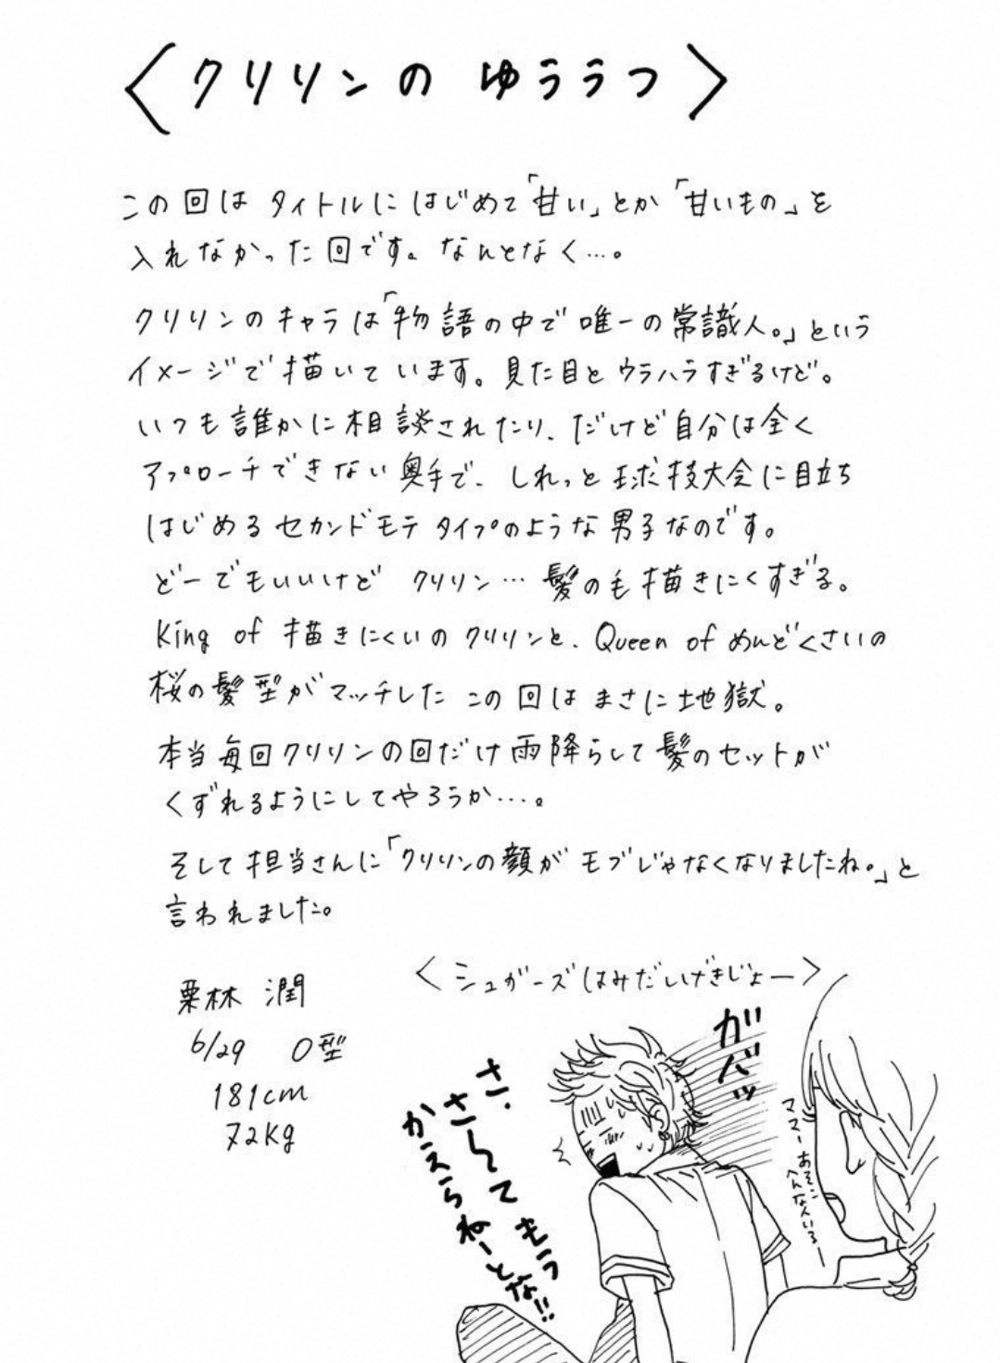 〈クリリンの ゆううつ〉
この回は タイトルに はじめて「甘い」とか「甘いもの」を
入れなかった回です。なんとなく…。
クリリンのキャラは「物語の中で 唯一の常識人。」という
イメージで描いています。見た目と ウラハラすぎるけど。
いつも誰かに相談されたり、だけど自分は全く
アプローチできない奥手で、しれっと 球技大会に目立ち
はじめるセカンドモテ タイプのような男子なのです。
どーでもいいけど クリリン…髪の毛描きにくすぎる。
King of 描きにくいのクリリンと、Queen of めんどくさいの
桜の髪型がマッチした この回は まさに地獄。
本当毎回クリリンの回だけ雨降らして髪のセットが
くずれるようにしてやろうか…。
そして担当さんに「クリリンの顔が モブじゃなくなりましたね。」と
言われました。
栗林 潤
6/29 O型
181cm
72kg
〈シュガーズはみだしげきじょー〉
ガバッ
さ、
さーて もう
かえらねーとな!!
ママーあそこ
へんな人いるー